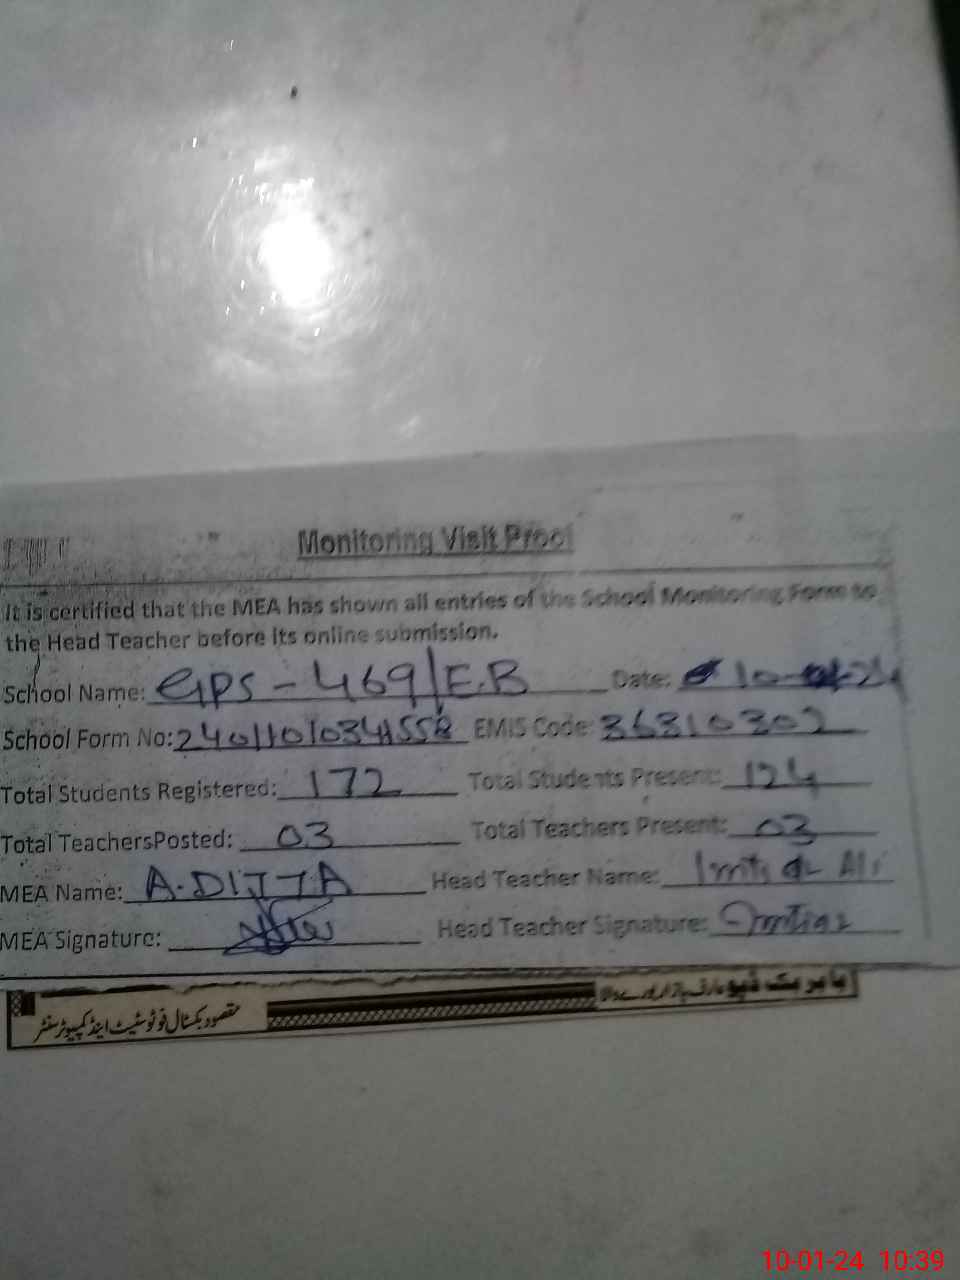 Monitoring Visit Proof
It is certified that the MEA has shown all entries of the School Monitoring Form to
the Head Teacher before its online submission.
School Name: GPS - 469/E.B Date: 10-01-24
School Form No: 24011010341558 EMIS Code: 36310302
Total Students Registered: 172 Total Students Present: 124
Total TeachersPosted: 03 Total Teachers Present: 03
MEA Name: A.DITTA Head Teacher Name: Imtiaz Ali
MEA Signature: Head Teacher Signature: Imtiaz
مقصود بکسٹال فوٹوسٹیٹ اینڈ کمپیوٹر سنٹر
10-01-24 10:39